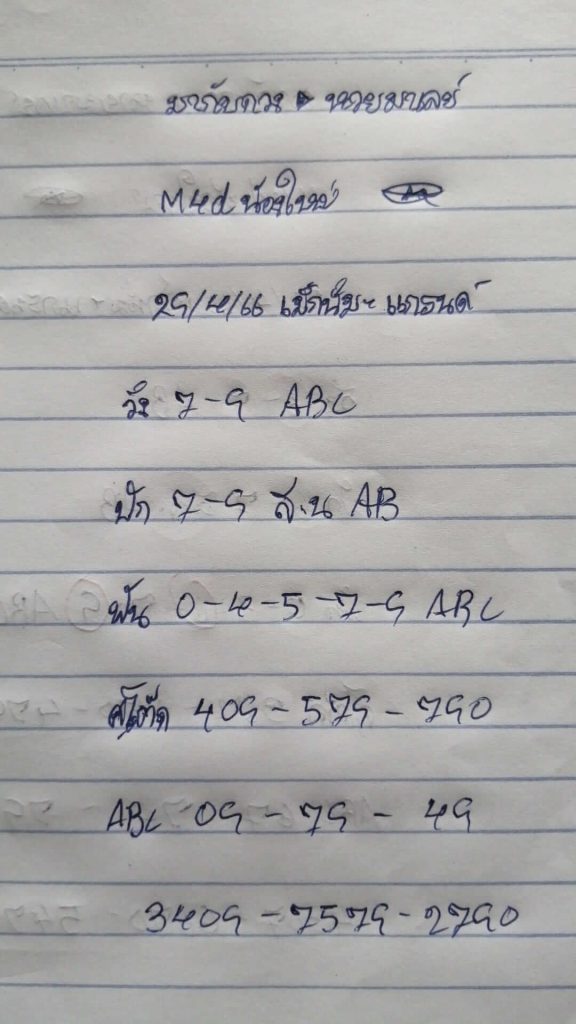 มากับดวง นายมนลย์
M4d น้องใหม่
29/4/66 แม็กนั่ม - แกรนด์
วิ่ง 7-9 ABC
ปัก 7-9 ส.น AB
ฟัน 0-4-5-7-9 ABC
3โต๊ด 409-579-790
ABC 09-79-49
3409-7579-2790